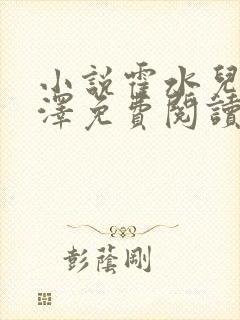 小說霍水兒
澤免費閱讀
彭蔭剛